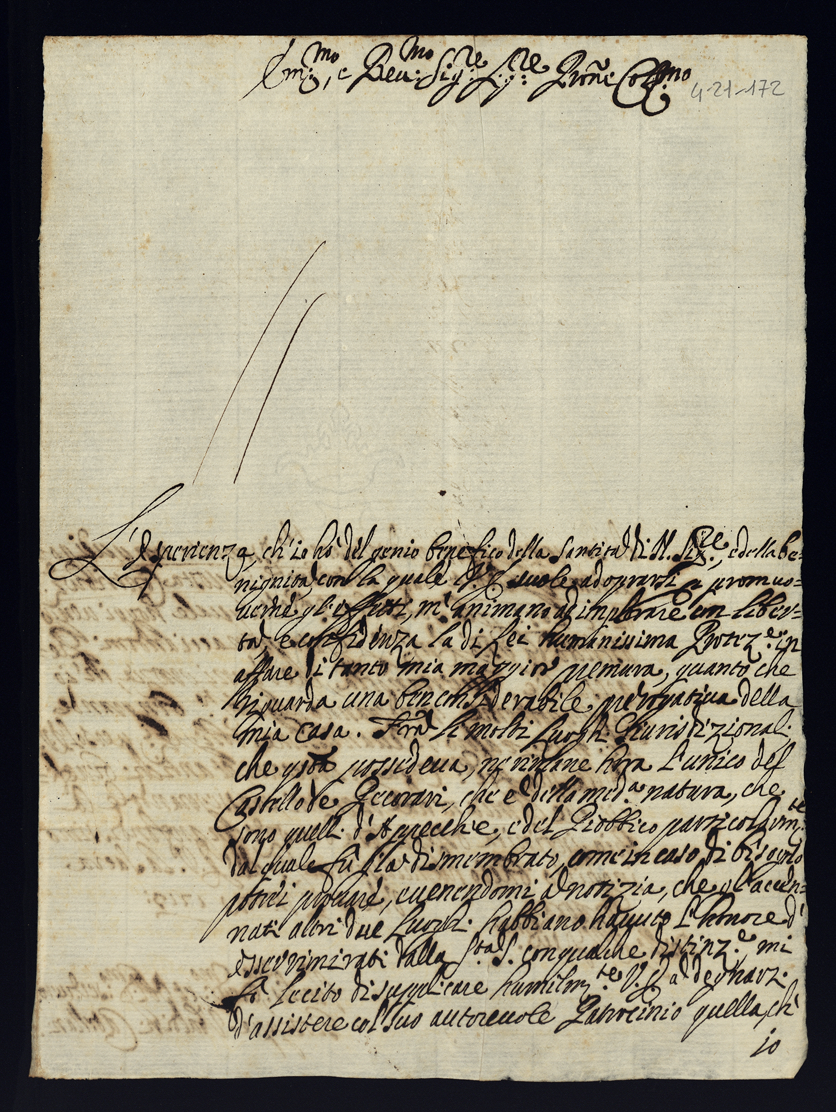 Em:mo, e Reu:mo Sig:re Sig:re Prone Col:mo
4-21-172
L'Esperienza, ch'io hò del genio benefico della Santità di N. Sig.re, e della be=
nignità, con la quale V. E. suole adoprarsi a promuo=
uerne gl'effetti, m'animano ad implorare con liber=
tà, e confidenza la di Lei humanissima Protez.e in
affare di tanto mia maggior premura, quanto che
riguarda una ben considerabile prerogatiua della
mia casa. Frà li molti Luoghi Giurisdizionali
che possedeua, ne rimane hora l'unico del
Castello de Pecorari, che è della med.a natura, che
sono quelli d'Apecchie, e del Piobbico particolarm.te
dal quale fù già dismembrato, come in caso di bisogno
potrei prouare, euenendomi à notizia, che gl'accen=
nati altri due Luoghi habbiano hauuto l'honore d'
esser rimirati dalla S.tà S. con qualche distinz.e, mi
fò lecito di supplicare humilm.te V. E. à degnarsi
d'assistere col suo autoreuole Patrocinio quella, ch'
io